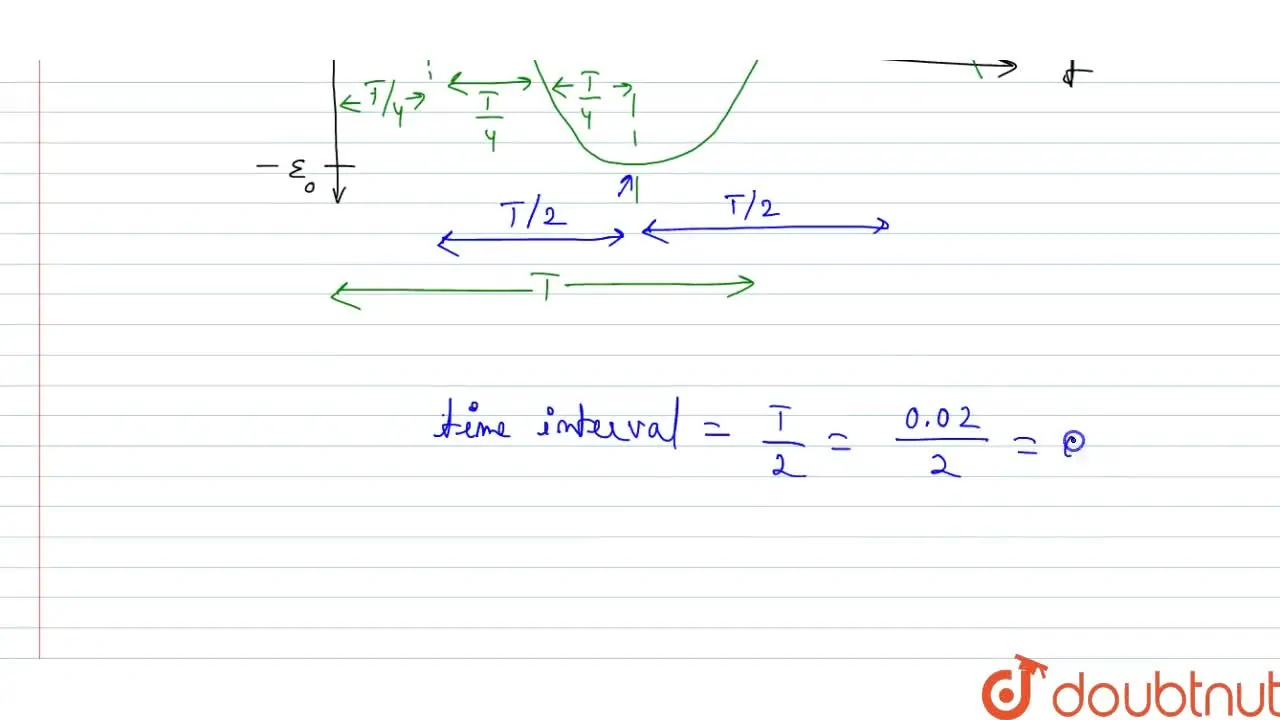 t
T/4
T/4
T/4
- ε₀
T/2
T/2
T
time interval = T/2 = 0.02/2 =
doubtnut